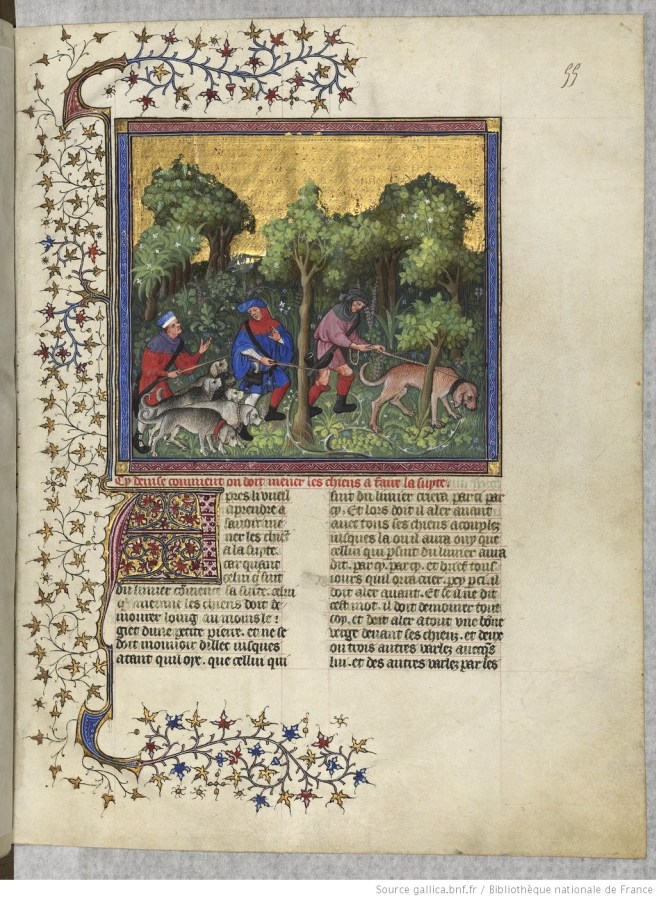 55
Cy deuise comment on doit mener les chiens a faire la suyte.
Apres li vueil
aprendre a
sauoir me
ner les chiẽs
a la suyte.
car quant
celui q̃ suit
du limier cõmence sa suite. celui
q̃ meinne les chiens doit de
mourer loing au moins le
giet dune petite pierre. et ne se
doit mouuoir dillec iusques
atant quil oye. que cellui qui
suit du limier criera par ci par
cy. Et lors doit il aler auant
auec tous ses chiens acouplez
iusques la ou il aura ouy que
cellui qui psuit du limier aura
dit. par cy. par cy. et brief tous
iours quil orra crier. pcy pci. il
doit aler auant. Et se il ne dit
cest mot. il doit demourer tout
coy. et doit aler atout vne bõne
verge deuant ses chiens. et deux
ou trois autres varlez auecqs̃
lui. et des autres varlez par les
Source gallica.bnf.fr / Bibliothèque nationale de France